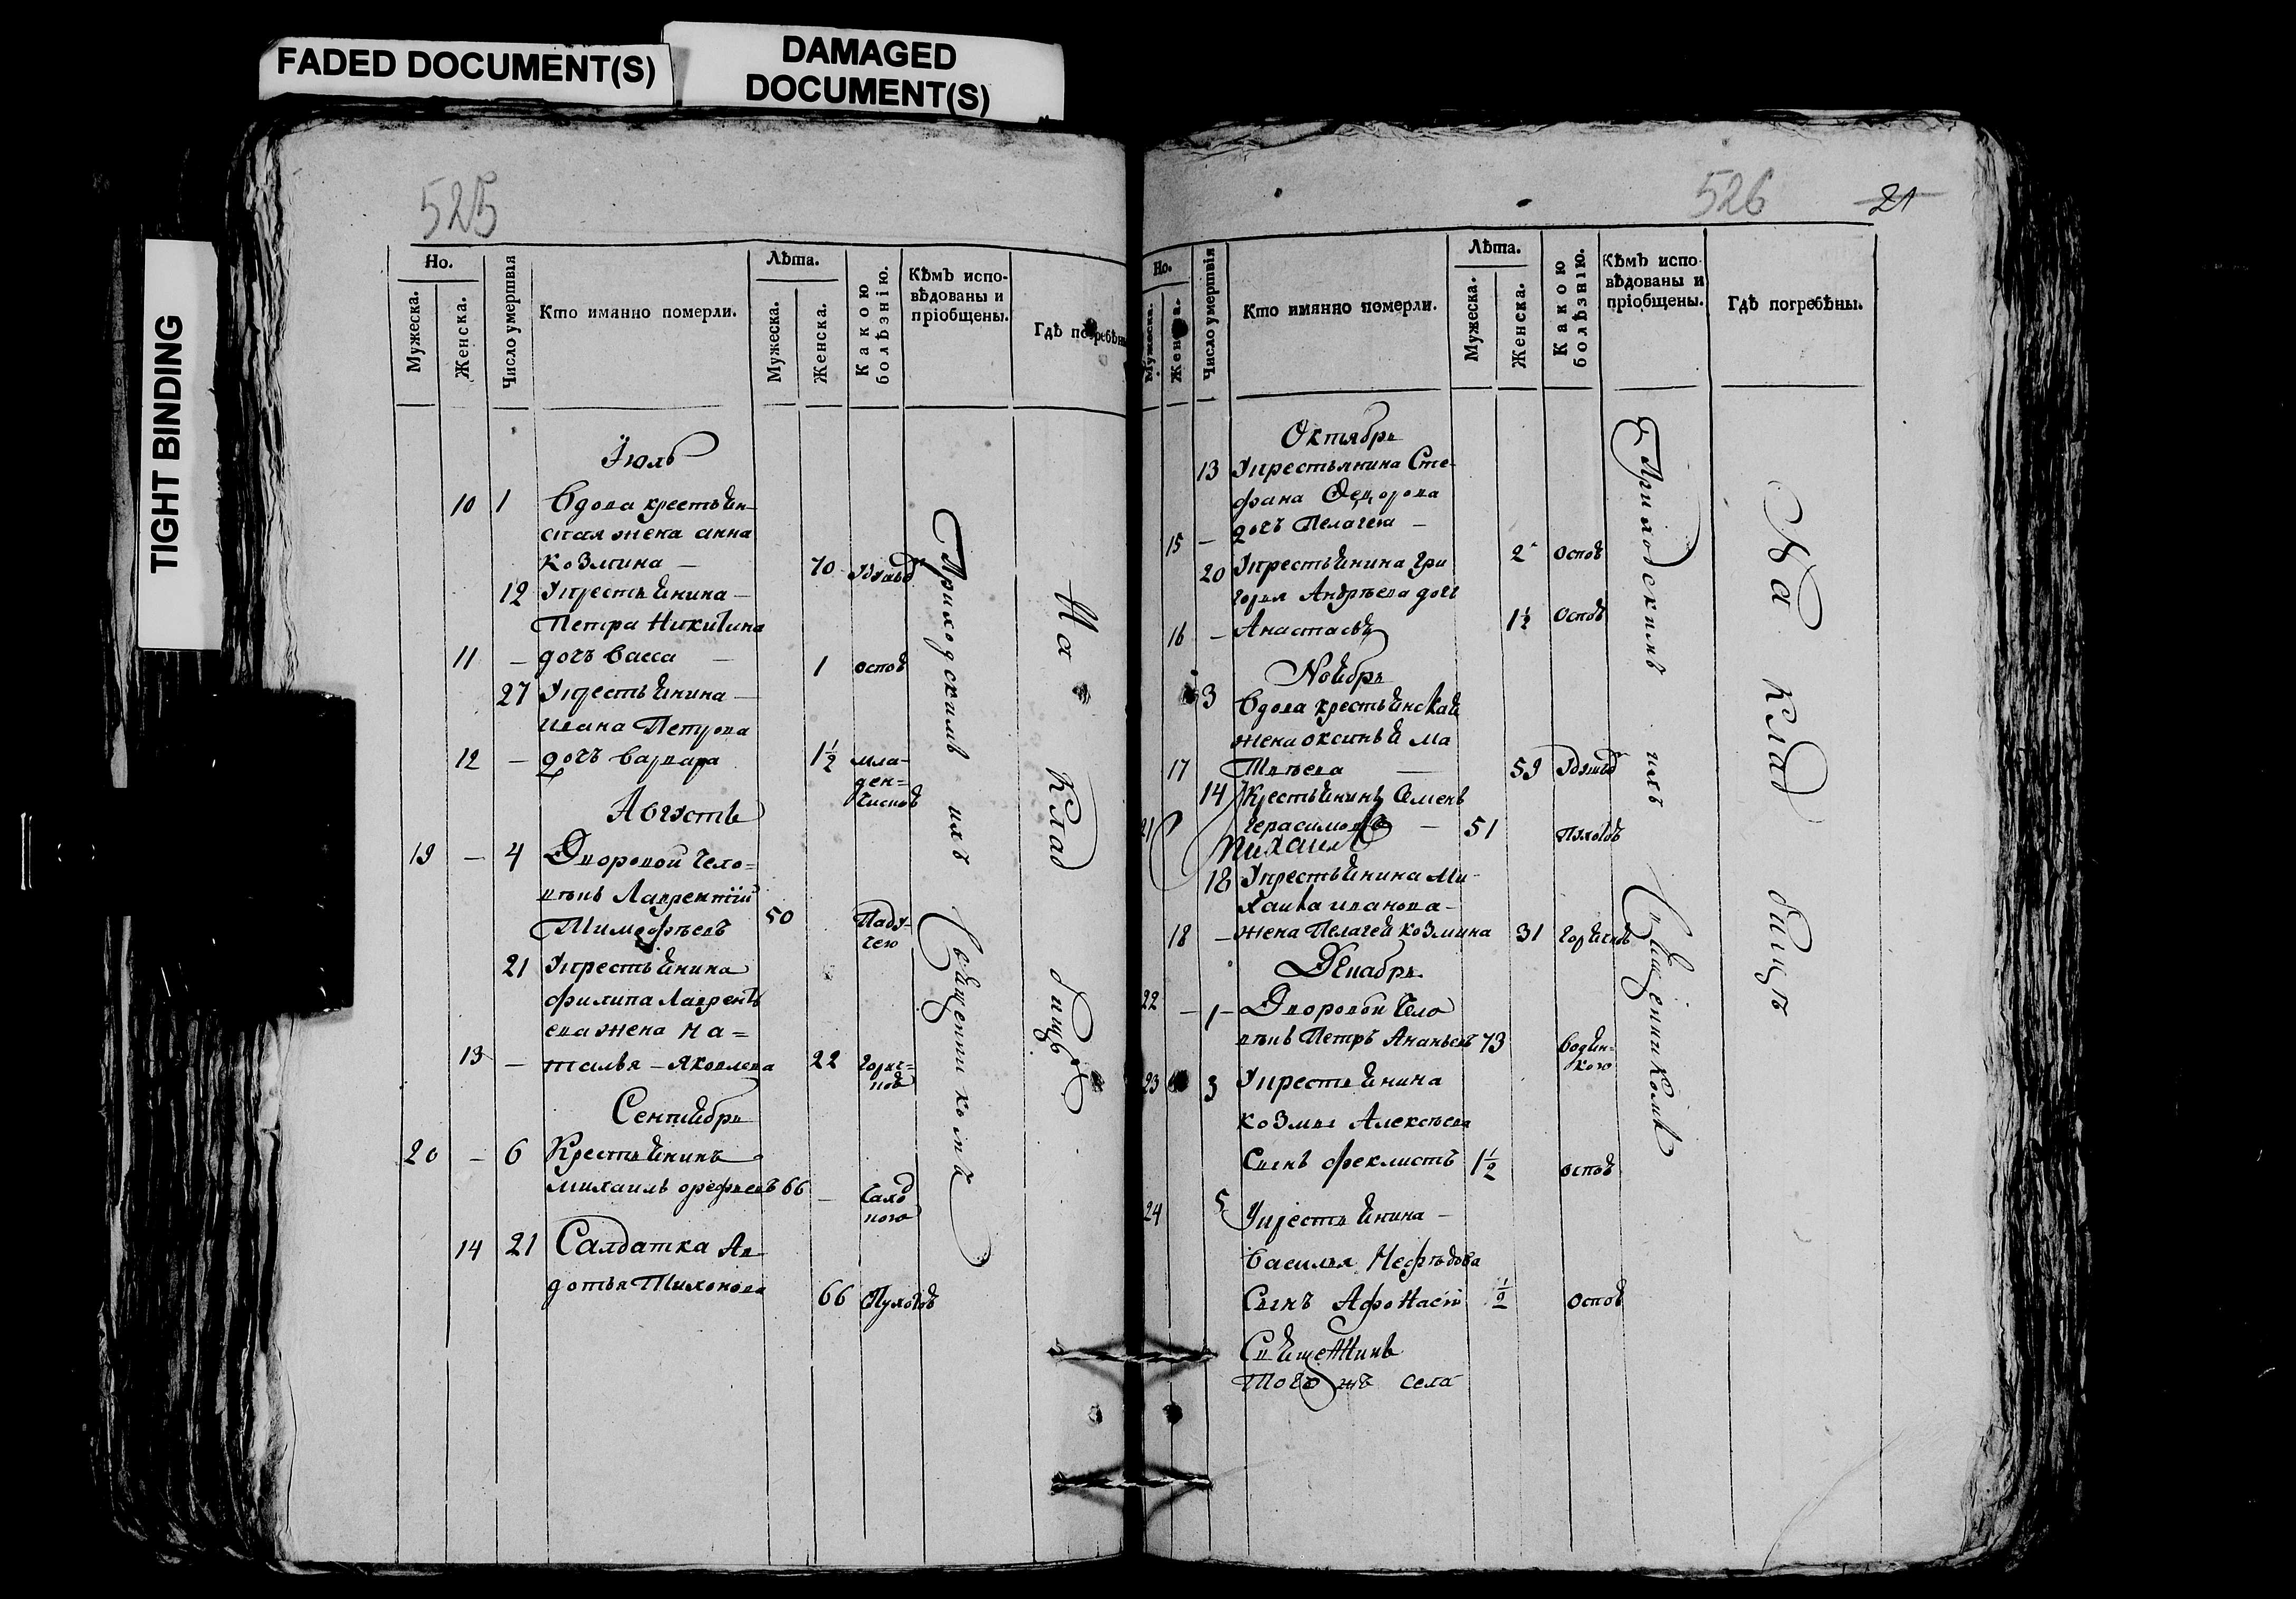 FADED DOCUMENT(S)
DAMAGED
DOCUMENT(S)
TIGHT BINDING
525
Но.
Мужеска.
Женска.
Число умертвія
Кто иманно померли.
Лѣта.
Мужеска.
Женска.
Какою
болѣзнію.
Кѣмъ испо-
вѣдованы и
пріобщены.
Гдѣ погребѣны
Іюль
10 1 Вдова крестьян-
ская жена анна
козмина — 70
12 Крестьянина —
Петра Никитина
11 — дочь Васса — 1 оспой
27 Крестьянина —
ивана Петрова
12 — дочь варвара 1½ мла-
ден-
ческой
Августъ
19 — 4 Дворовой чело=
вѣкъ Лаврентій
Тимофѣевъ 50 Паду-
чею
21 Крестьянина
филипа Лаврентъ
ева жена На=
13 — талья — Яковлева 22 горяч=
кой
Сентябрь
20 — 6 Крестьянинъ
михаилъ орефьевъ 66 —
14 21 Салдатка Ав
дотья Тихонова 66
Приходскимъ ихъ Священникомъ
На Кладбищѣ
526
21
Но.
Мужеска.
Женска.
Число умертвія
Кто имянно померли.
Лѣта.
Мужеска.
Женска.
Какою
болѣзнію.
Кѣмъ испо-
вѣдованы и
пріобщены.
Гдѣ погребѣны.
Октябрь
13 Крестьянина Сте-
фана Федорова
15 — дочь Пелагея — 2 оспой
20 Крестьянина Гри
горья Андрѣева дочь
16 — Анастасья 1½ оспой
Ноябрь
3 Вдова крестьянская
жена оксинья Ма
17 твѣева — 59
14 Крестьянинъ Семенъ
21 герасимовъ — 51
Михаил
18 Крестьянина Ми-
хаила иванова —
18 — жена Пелагея козмина 31 горячкой
Декабрь
22 — 1 — Дворовой чело
вѣкъ Петръ Ананьевъ 73 водян-
кою
23 3 Крестьянина
козмы Алексѣева
Сынъ феклистъ 1½ оспой
24 5 Крестьянина —
василья Нефѣдова
Сынъ Афонасій ½ оспой
Священникъ
Того жъ села
Приходскимъ ихъ Священникомъ
На кладбищѣ